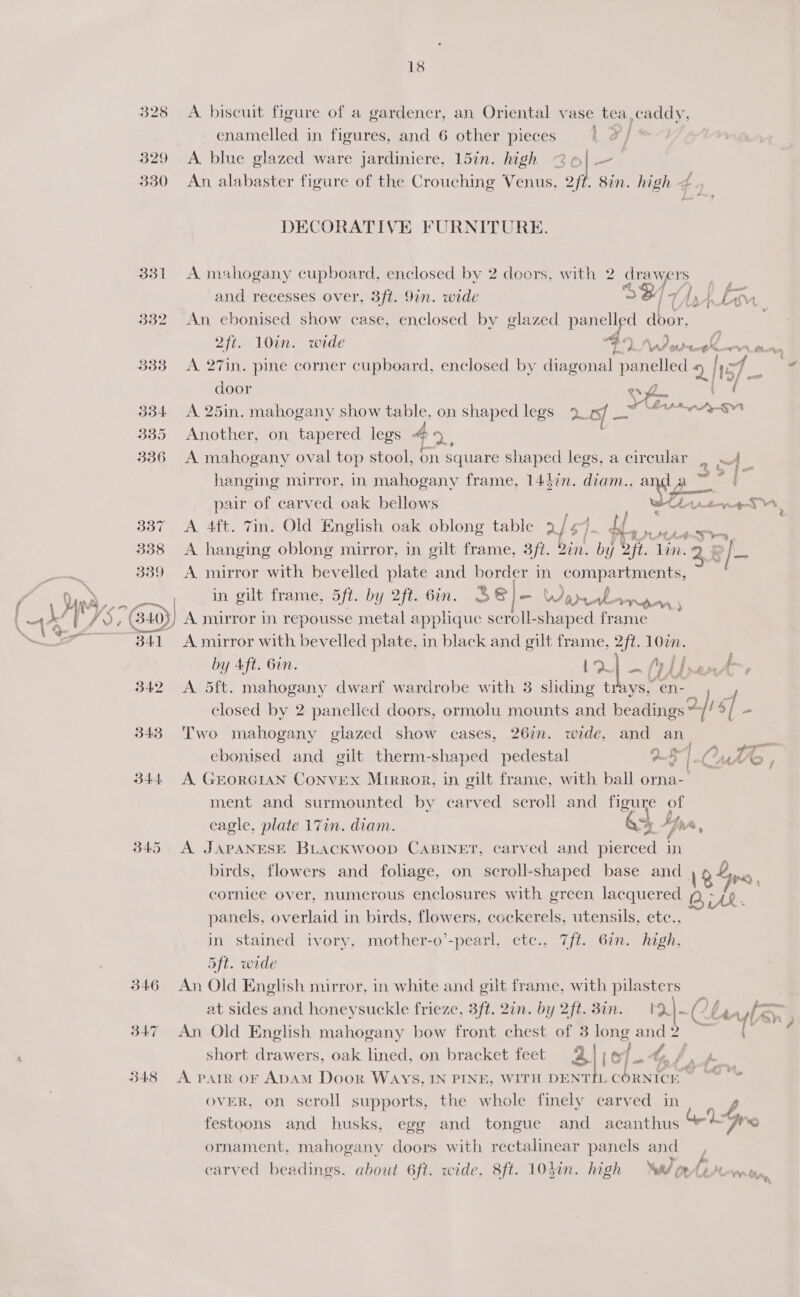 18
328 A biscuit figure of a gardener, an Oriental vase tea caddy,
enamelled in figures, and 6 other pieces
329 A blue glazed ware jardiniere, 15in. high 30/-
330 An alabaster figure of the Crouching Venus, 2ft. 8in. high
DECORATIVE FURNITURE.
331 A mahogany cupboard, enclosed by 2 doors, with 2 drawers
and recesses over, 3ft. 9in. wide
332 An ebonised show case, enclosed by glazed panelled door,
2ft. 10in. wide
333 A 27in. pine corner cupboard, enclosed by diagonal panelled
door
334 A 25in. mahogany show table, on shaped legs
335 Another, on tapered legs
336 A mahogany oval top stool, on square shaped legs, a circular
hanging mirror, in mahogany frame, 14½in. diam., and a
pair of carved oak bellows
337 A 4ft. 7in. Old English oak oblong table
338 A hanging oblong mirror, in gilt frame, 3ft. 2in. by 2ft. 1in.
339 A mirror with bevelled plate and border in compartments,
in gilt frame, 5ft. by 2ft. 6in. 38/-
340 A mirror in repousse metal applique scroll-shaped frame
341 A mirror with bevelled plate, in black and gilt frame, 2ft. 10in.
by 4ft. 6in.
342 A 5ft. mahogany dwarf wardrobe with 3 sliding trays, en-
closed by 2 panelled doors, ormolu mounts and beadings
343 Two mahogany glazed show cases, 26in. wide, and an
ebonised and gilt therm-shaped pedestal
344 A GEORGIAN CONVEX MIRROR, in gilt frame, with ball orna-
ment and surmounted by carved scroll and figure of
eagle, plate 17in. diam.
345 A JAPANESE BLACKWOOD CABINET, carved and pierced in
birds, flowers and foliage, on scroll-shaped base and
cornice over, numerous enclosures with green lacquered
panels, overlaid in birds, flowers, cockerels, utensils, etc.,
in stained ivory, mother-o'-pearl, etc., 7ft. 6in. high,
5ft. wide
346 An Old English mirror, in white and gilt frame, with pilasters
at sides and honeysuckle frieze, 3ft. 2in. by 2ft. 3in.
347 An Old English mahogany bow front chest of 3 long and 2
short drawers, oak lined, on bracket feet
348 A PAIR OF ADAM DOOR WAYS, IN PINE, WITH DENTIL CORNICE
OVER, on scroll supports, the whole finely carved in
festoons and husks, egg and tongue and acanthus
ornament, mahogany doors with rectalinear panels and
carved beadings, about 6ft. wide, 8ft. 10½in. high